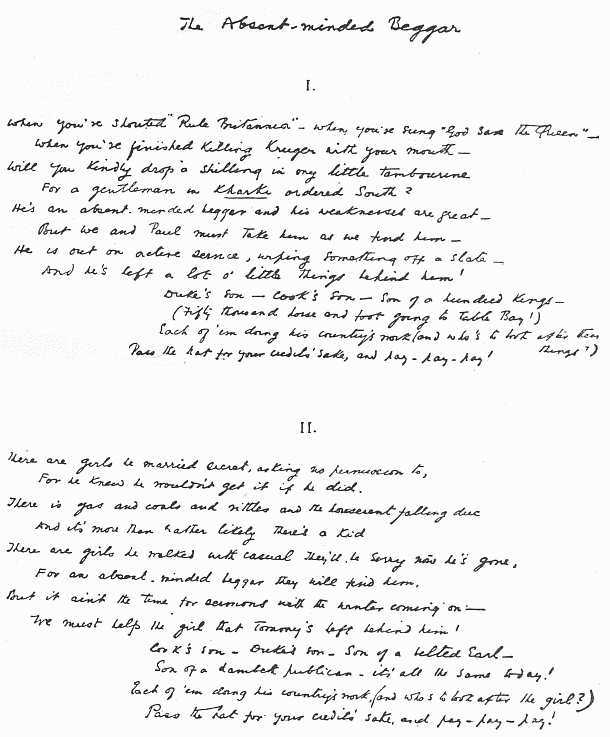 The Absent-minded Beggar
I.
When you've shouted "Rule Britannia" – when you've sung "God save the Queen" –
When you've finished killing Kruger with your mouth –
Will you kindly drop a shilling in my little tambourine
For a gentleman in Kharki ordered South?
He's an absent-minded beggar and his weaknesses are great –
But we and Paul must take him as we find him –
He is out on active service, wiping something off a slate –
And he's left a lot o' little things behind him!
Duke's son – Cook's son – Son of a hundred Kings –
(Fifty thousand horse and foot going to Table Bay!)
Each of 'em doing his country's work (and who's to look after their
things?)
Pass the hat for your credit's sake, and pay – pay – pay!
II.
There are girls he married secret, asking no permission to,
For he knew he wouldn't get it if he did.
There is gas and coals and vittles and the houserent falling due
And it's more than rather likely there's a kid
There are girls he walked with casual They'll be sorry now he's gone,
For an absent-minded beggar they will find him.
But it ain't the time for sermons with the winter coming on –
We must help the girl that Tommy's left behind him!
Cook's son – Duke's son – Son of a belted Earl –
Son of a Lambeth publican – it's all the same today!
Each of 'em doing his country's work, (and who's to look after the girl?)
Pass the hat for your credit's sake, and pay – pay – pay!